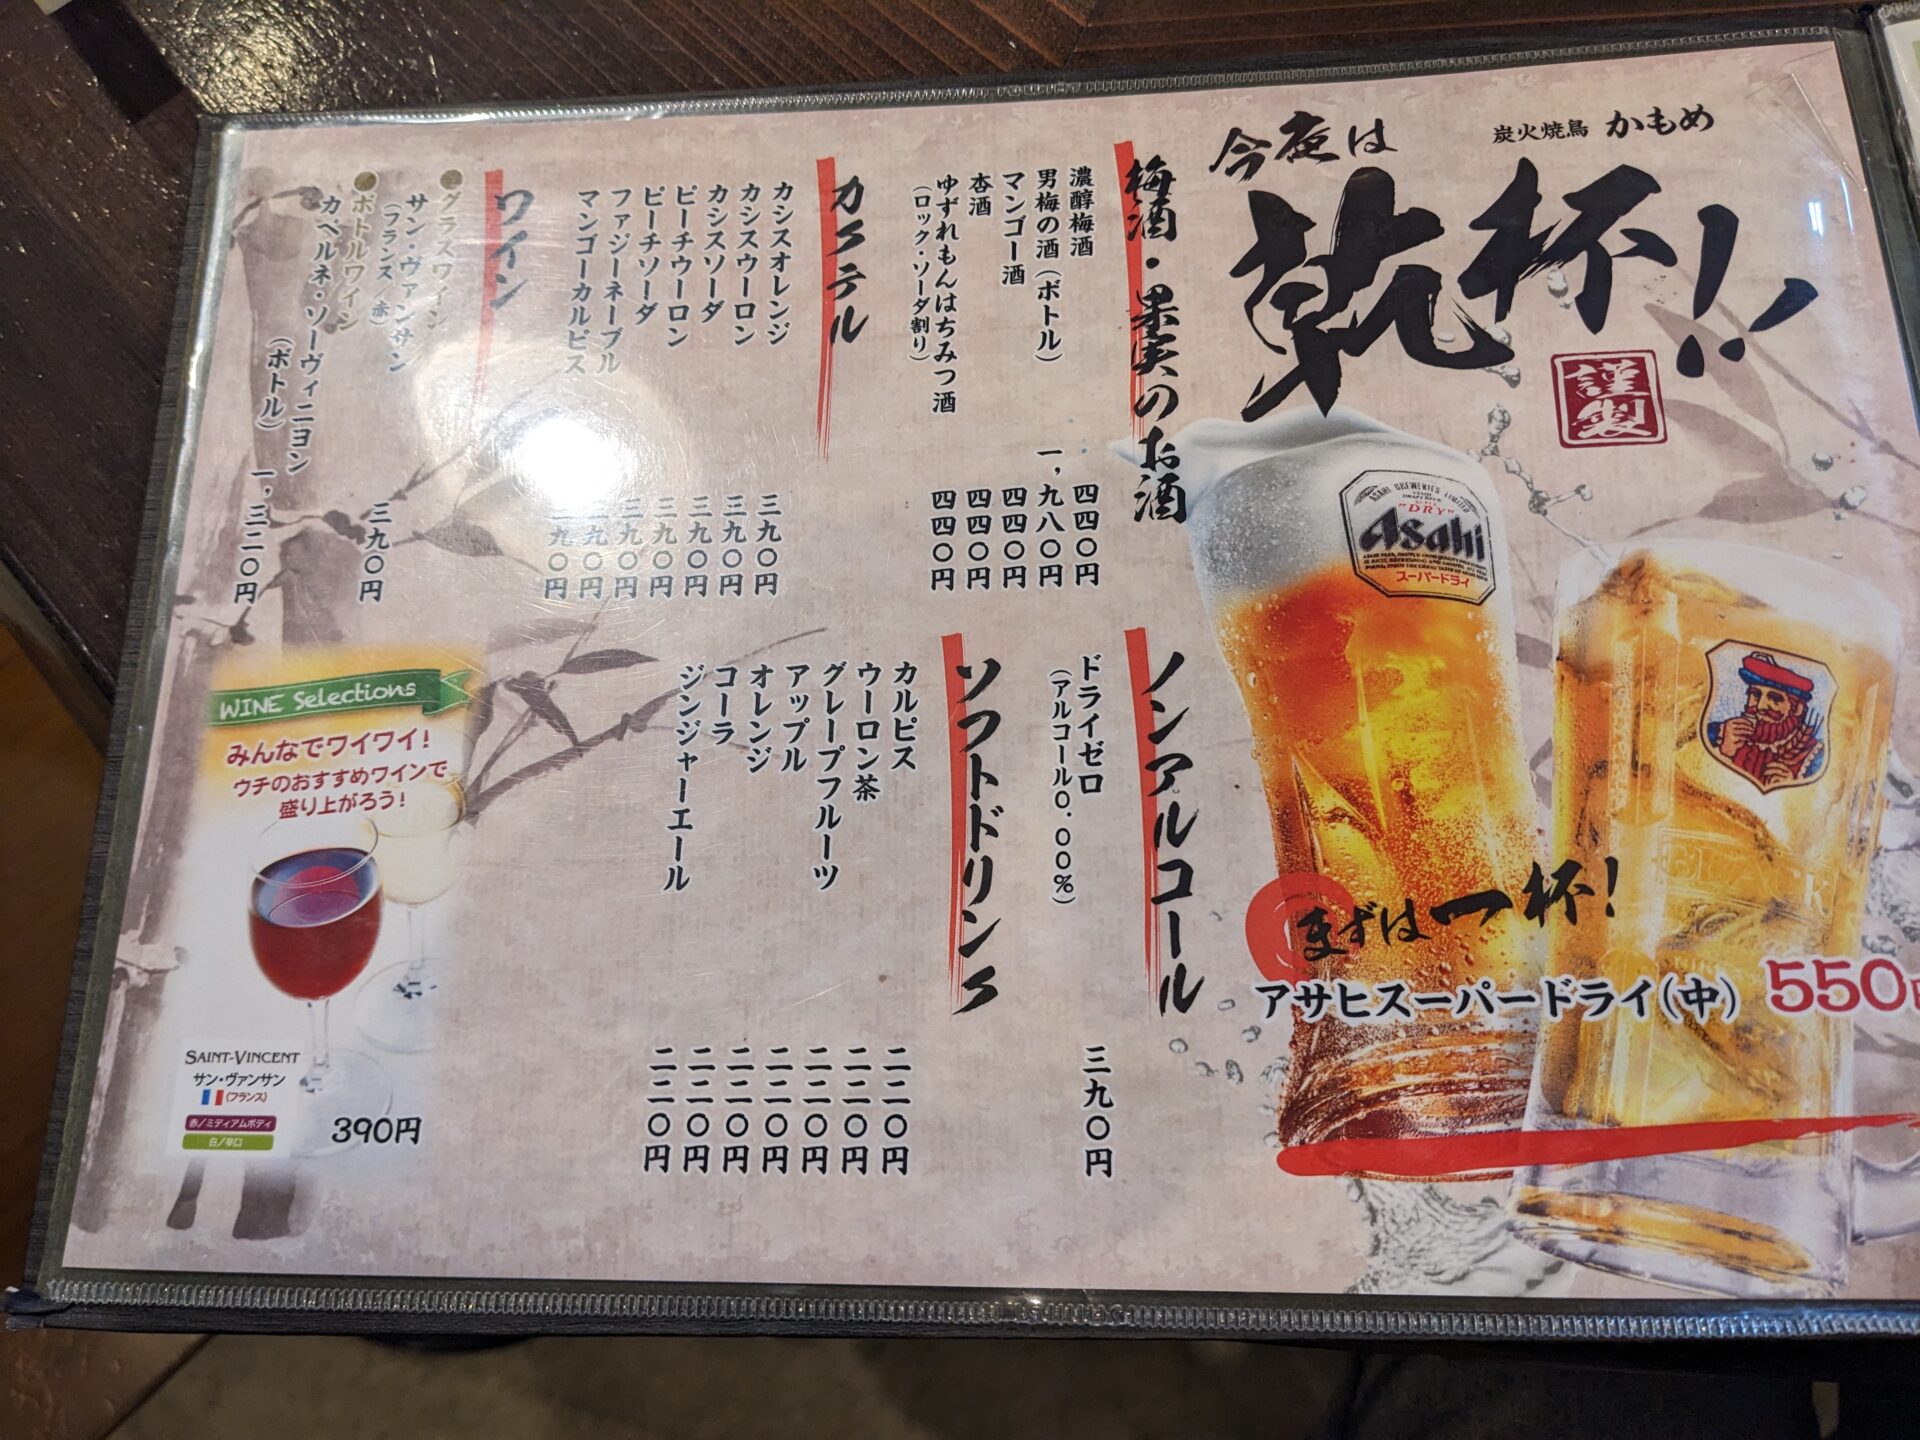 炭火焼鳥 かもめ
今夜は
乾杯!!
謹製
ASAHI BREWERIES LIMITED
"DRY"
Asahi
スーパードライ
BLACK
まずは一杯!
アサヒスーパードライ(中) 550
梅酒・果実のお酒
濃醇梅酒 四四〇円
男梅の酒(ボトル) 一,九八〇円
マンゴー酒 四四〇円
杏酒 四四〇円
ゆずれもんはちみつ酒 四四〇円
(ロック・ソーダ割り)
カクテル
カシスオレンジ 三九〇円
カシスウーロン 三九〇円
カシスソーダ 三九〇円
ピーチウーロン 三九〇円
ピーチソーダ 三九〇円
ファジーネーブル 三九〇円
マンゴーカルピス 三九〇円
ワイン
●グラスワイン
サン・ヴァンサン 三九〇円
(フランス/赤)
●ボトルワイン
カベルネ・ソーヴィニヨン
(ボトル) 一,三二〇円
ノンアルコール
ドライゼロ 三九〇円
(アルコール0.00%)
ソフトドリンク
カルピス 二二〇円
ウーロン茶 二二〇円
グレープフルーツ 二二〇円
アップル 二二〇円
オレンジ 二二〇円
コーラ 二二〇円
ジンジャーエール 二二〇円
WINE Selections
みんなでワイワイ!
ウチのおすすめワインで
盛り上がろう!
SAINT-VINCENT
サン・ヴァンサン
(フランス)
赤/ミディアムボディ
白/辛口
390円